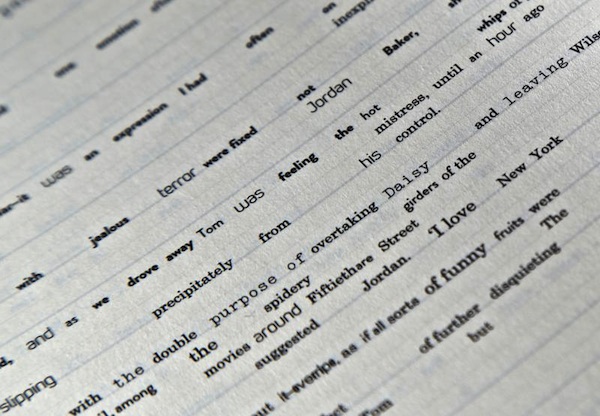 was an expression I had often on
with jealous terror were fixed not Jordan Baker,
and as we drove away Tom was feeling the hot whips of
mistress, until an hour ago
slipping precipitately from his control.
with the double purpose of overtaking Daisy and leaving
among the spidery girders of the
movies around Fiftiethare Street
suggested Jordan. I love New York
as if all sorts of funny fruits were
of further disquieting The
but
Tom